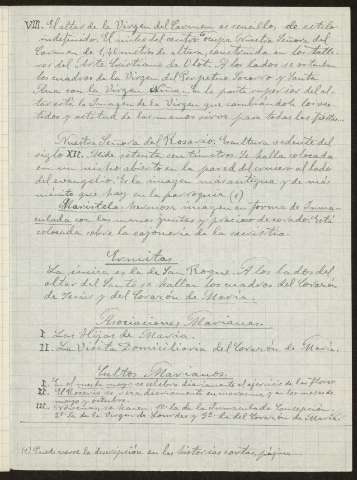 VIII. El altar de la Virgen del Carmen es sencillo, de estilo
indefinido. El nicho del centro lo ocupa Nuestra Señora del
Carmen de 1,40 metros de altura, construida en los talle-
res del Arte Cristiano de Olot. A los lados se ostentan
los cuadros de la Virgen del Perpetuo Socorro y Santa
Ana con la Virgen Niña. En la parte superior del al-
tar está la Imagen de la Virgen que cambiándole los ves-
tidos y actitud de las manos sirve para todas las fiestas.
Nuestra Señora del Rosario. Escultura sedente del
siglo XII. Mide setenta centímetros. Se halla colocada
en un nicho abierto en la pared del crucero al lado
del evangelio. Es la imagen más antigua y de más
mérito que hay en la parroquia (1)
Maristela. Hermosa imagen en forma de Inma-
culada con las manos juntas y precioso dorado. Está
colocada sobre la cajonería de la sacristía.
Ermitas
La única es la de San Roque. A los lados del
altar del Santo se hallan los cuadros del Corazón
de Jesús y del Corazón de María.
Asociaciones Marianas.
I. Las Hijas de María.
II. La Visita Domiciliaria del Corazón de María.
Cultos Marianos.
I. En el mes de mayo se celebra diariamente el ejercicio de las flores.
II. El Rosario se reza diariamente en cuaresma y en los meses de
mayo y octubre.
III. Novenas, se hacen, 1º la de la Inmaculada Concepción.
2º la de la Virgen de Lourdes y 3º la del Corazón de María.
(1) Puede verse la descripción en las historias página